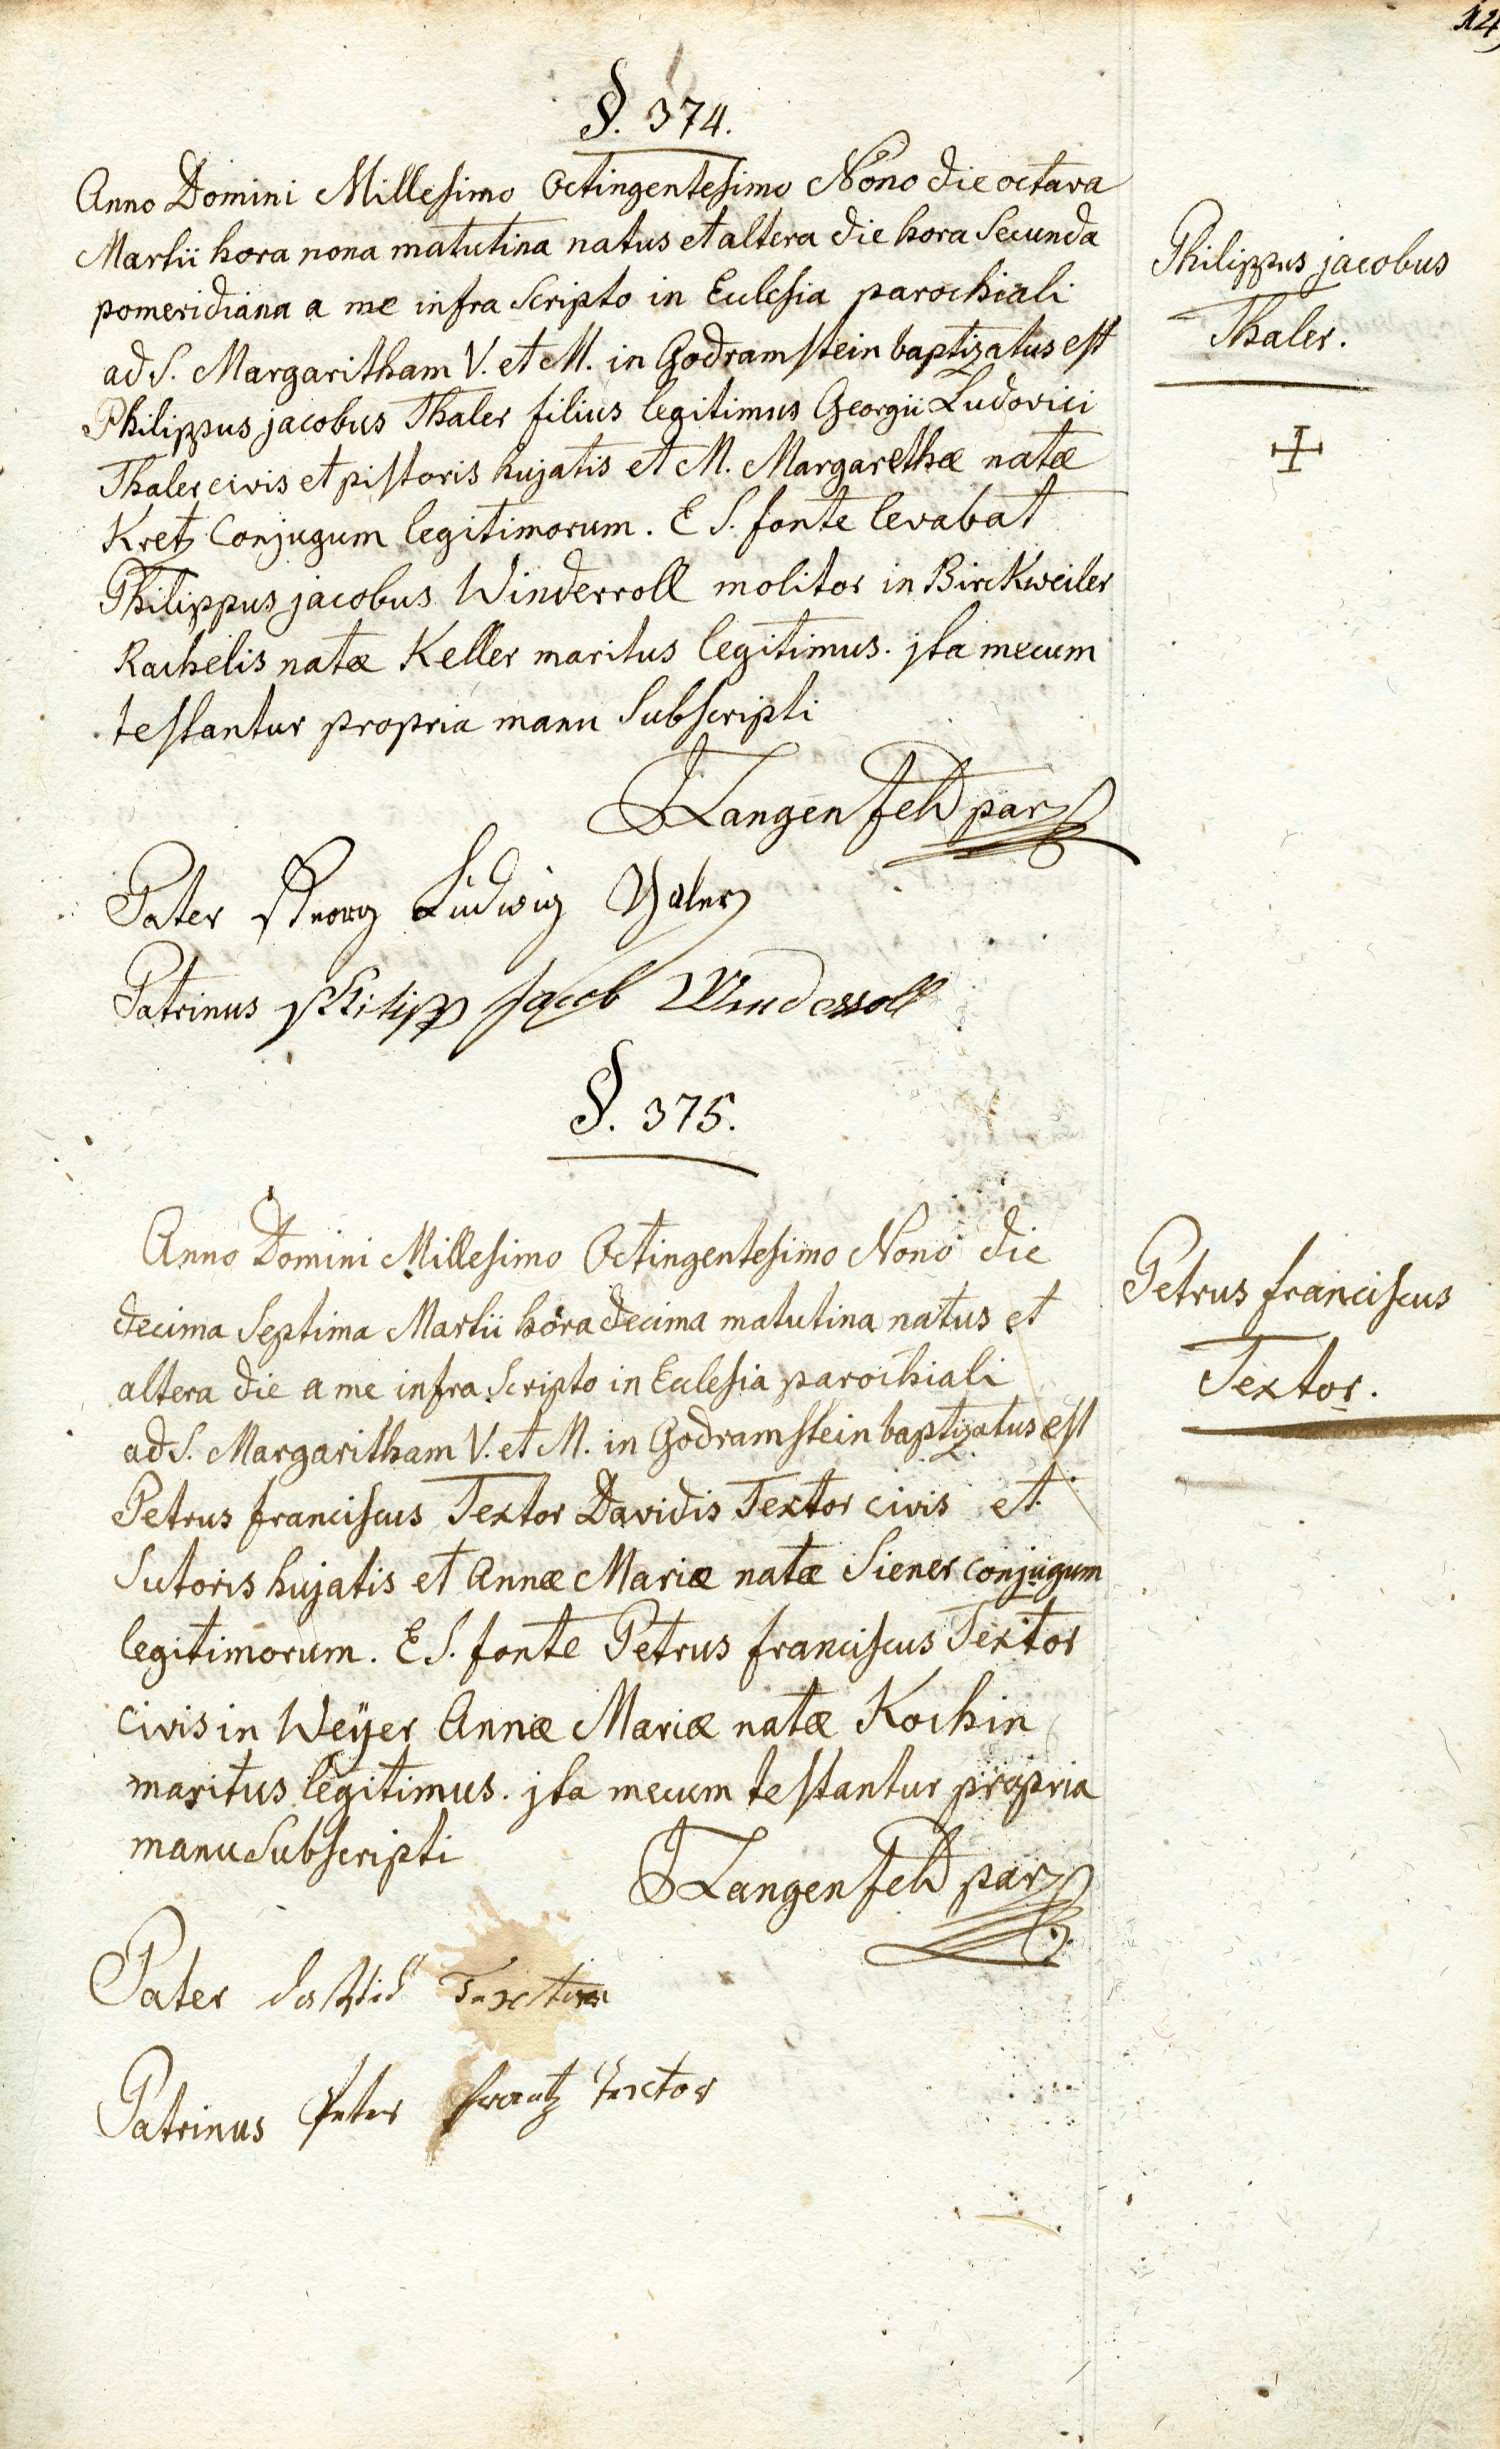 §. 374.
Anno Domini Millesimo Octingentesimo Nono die octava
Martii hora nona matutina natus et altera die hora Secunda
pomeridiana a me infra Scripto in Ecclesia parochiali
ad S. Margaritham V. et M. in Godramstein baptizatus est
Philippus jacobus Thaler filius legitimus Georgii Ludovici
Thaler civis et pistoris hujatis et M. Margarethæ natæ
Kretz Conjugum legitimorum. E S. fonte levabat
Philippus jacobus Winderroll molitor in Birckweiler
Rachelis natæ Keller maritus legitimus. jta mecum
testantur propria manu Subscripti
Philippus jacobus
Thaler.
Langenfeld par
Pater Georg Ludwig Thaler
Patrinus Philipp Jacob Winderroll
§. 375.
Anno Domini Millesimo Octingentesimo Nono die
decima Septima Martii hora decima matutina natus et
altera die a me infra Scripto in Ecclesia parochiali
ad S. Margaritham V. et M. in Godramstein baptizatus est
Petrus franciscus Textor Davidis Textor civis et
Sutoris hujatis et Annæ Mariæ natæ Siener conjugum
legitimorum. E S. fonte Petrus franciscus Textor
civis in Weÿer Annæ Mariæ natæ Kochin
maritus legitimus. jta mecum testantur propria
manu Subscripti
Petrus franciscus
Textor.
Langenfeld par
Pater Textor
Patrinus Peter frantz Textor